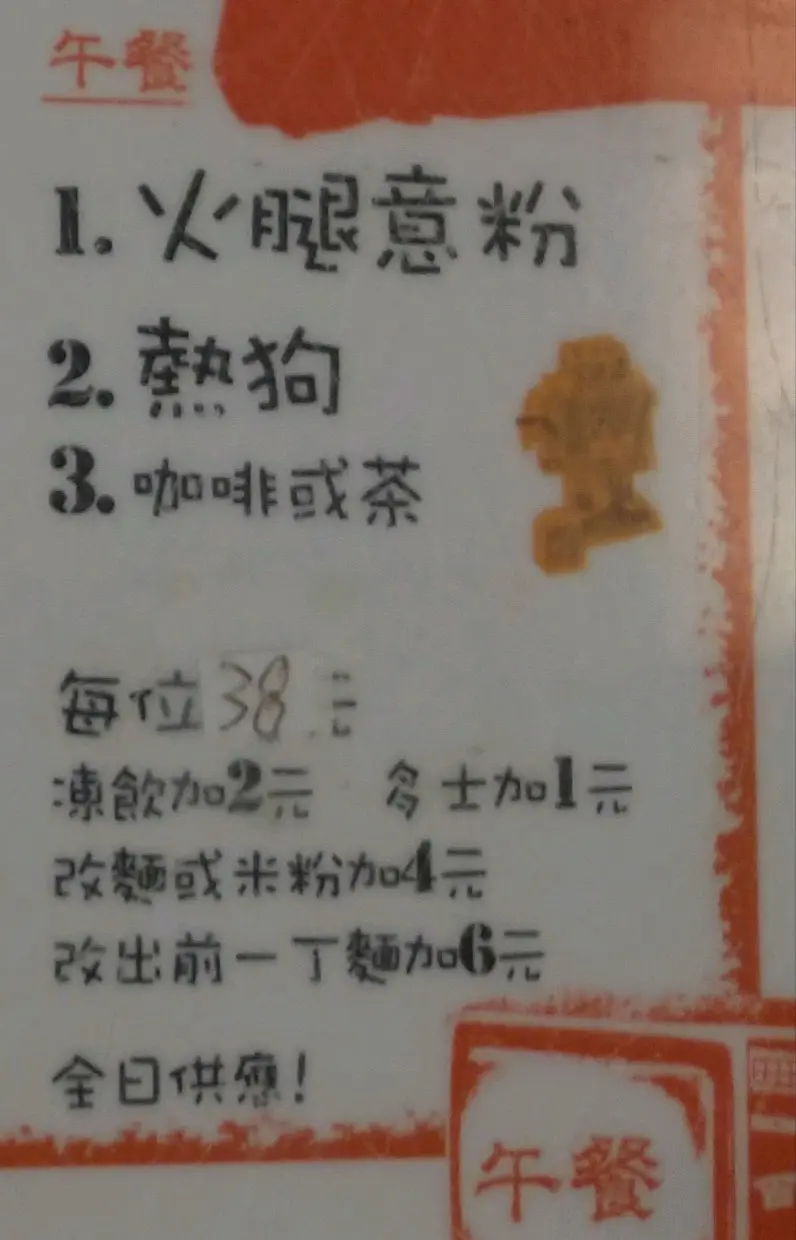 午餐
1. 火腿意粉
2. 熱狗
3. 咖啡或茶
每位38元
凍飲加2元 多士加1元
改麵或米粉加4元
改出前一丁麵加6元
全日供應!
午餐